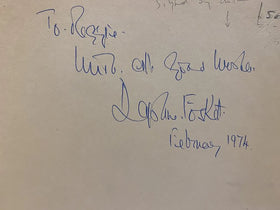 To. Reggie.
With all Good Wishes.
Daphne Foskett.
February 1974.